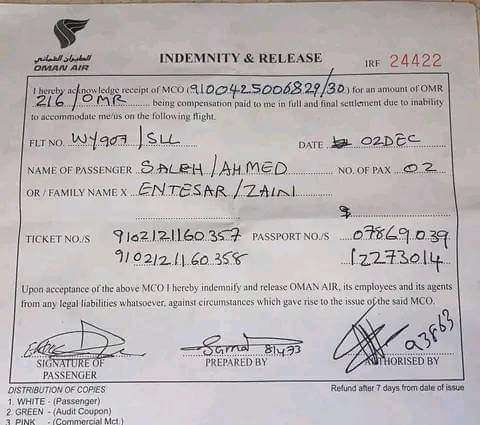 الطيران العماني
OMAN AIR
INDEMNITY & RELEASE
IRF 24422
I hereby acknowledge receipt of MCO (9100425006829/30) for an amount of OMR
216/OMR being compensation paid to me in full and final settlement due to inability
to accommodate me/us on the following flight.
FLT NO. WY907/SLL DATE 02DEC
NAME OF PASSENGER SALEH/AHMED NO. OF PAX 02
OR / FAMILY NAME X ENTESAR/ZAINI
TICKET NO./S 9102121160357 PASSPORT NO./S 07869039
9102121160358 12273014
Upon acceptance of the above MCO I hereby indemnify and release OMAN AIR, its employees and its agents
from any legal liabilities whatsoever, against circumstances which gave rise to the issue of the said MCO.
81473 93863
SIGNATURE OF PASSENGER PREPARED BY AUTHORISED BY
DISTRIBUTION OF COPIES Refund after 7 days from date of issue
1. WHITE - (Passenger)
2. GREEN - (Audit Coupon)
3. PINK - (Commercial Mct.)